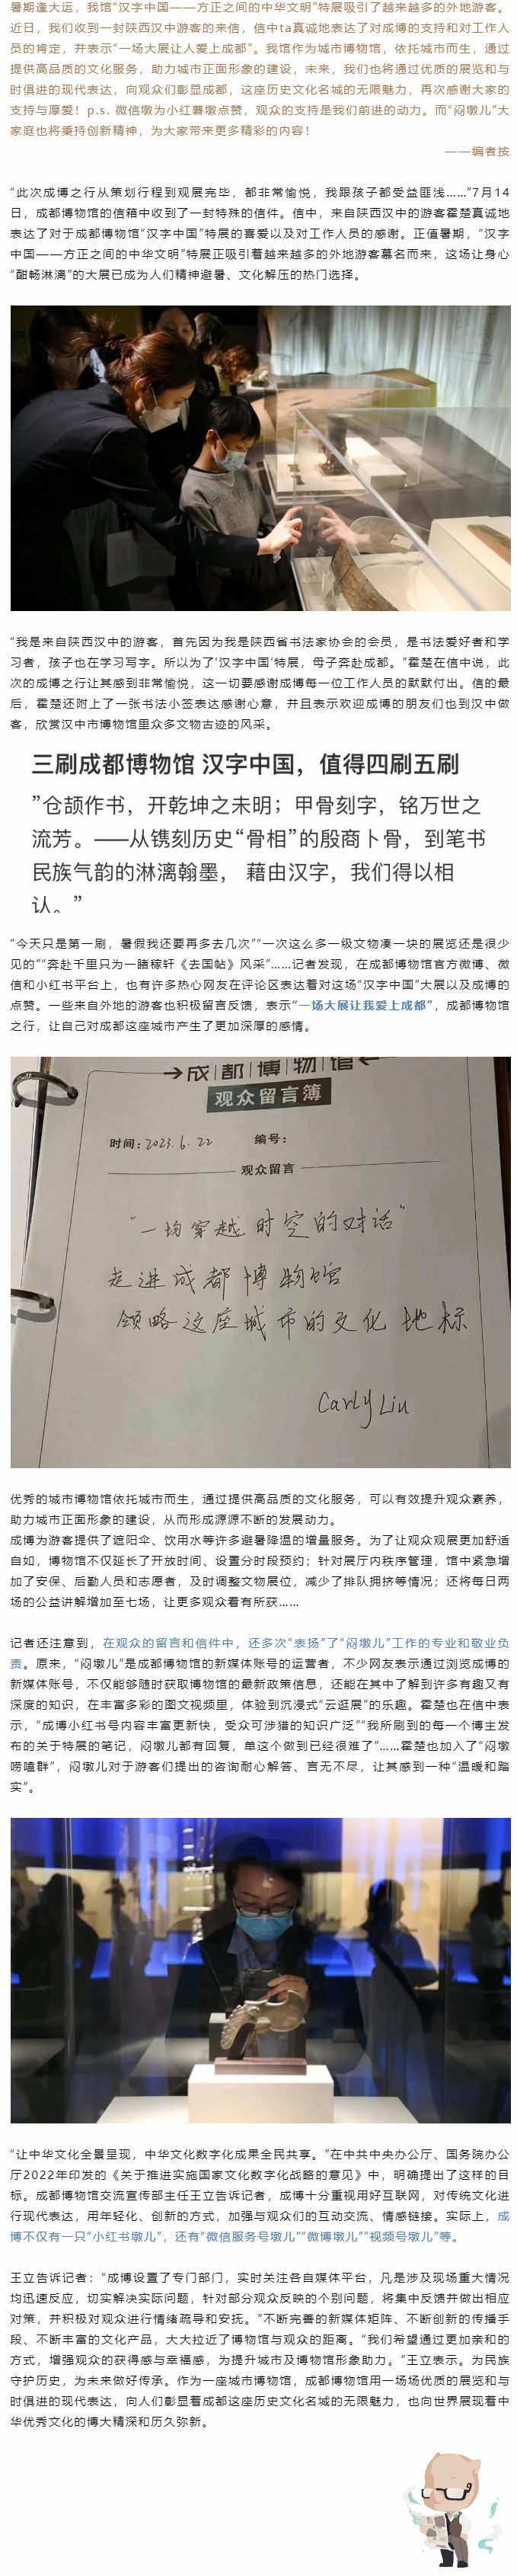 暑期逢大运，我馆“汉字中国——方正之间的中华文明”特展吸引了越来越多的外地游客。
近日，我们收到一封陕西汉中游客的来信，信中ta真诚地表达了对成博的支持和对工作人
员的肯定，并表示“一场大展让人爱上成都”。我馆作为城市博物馆，依托城市而生，通过
提供高品质的文化服务，助力城市正面形象的建设，未来，我们也将通过优质的展览和与
时俱进的现代表达，向观众们彰显成都，这座历史文化名城的无限魅力，再次感谢大家的
支持与厚爱！p.s. 微信墩为小红薯墩点赞，观众的支持是我们前进的动力。而“闷墩儿”大
家庭也将秉持创新精神，为大家带来更多精彩的内容！
——编者按
“此次成博之行从策划行程到观展完毕，都非常愉悦，我跟孩子都受益匪浅……”7月14
日，成都博物馆的信箱中收到了一封特殊的信件。信中，来自陕西汉中的游客霍楚真诚地
表达了对于成都博物馆“汉字中国”特展的喜爱以及对工作人员的感谢。正值暑期，“汉字
中国——方正之间的中华文明”特展正吸引着越来越多的外地游客慕名而来，这场让身心
“酣畅淋漓”的大展已成为人们精神避暑、文化解压的热门选择。
“我是来自陕西汉中的游客，首先因为我是陕西省书法家协会的会员，是书法爱好者和学
习者，孩子也在学习写字。所以为了‘汉字中国’特展，母子奔赴成都。”霍楚在信中说，此
次的成博之行让其感到非常愉悦，这一切要感谢成博每一位工作人员的默默付出。信的最
后，霍楚还附上了一张书法小签表达感谢心意，并且表示欢迎成博的朋友们也到汉中做
客，欣赏汉中市博物馆里众多文物古迹的风采。
三刷成都博物馆 汉字中国，值得四刷五刷
”仓颉作书，开乾坤之未明；甲骨刻字，铭万世之
流芳。——从镌刻历史“骨相”的殷商卜骨，到笔书
民族气韵的淋漓翰墨， 藉由汉字，我们得以相
认。”
“今天只是第一刷，暑假我还要再多去几次”“一次这么多一级文物凑一块的展览还是很少
见的”“奔赴千里只为一睹稼轩《去国帖》风采”……记者发现，在成都博物馆官方微博、微
信和小红书平台上，也有许多热心网友在评论区表达着对这场“汉字中国”大展以及成博的
点赞。一些来自外地的游客也积极留言反馈，表示“一场大展让我爱上成都”，成都博物馆
之行，让自己对成都这座城市产生了更加深厚的感情。
成都博物馆
观众留言簿
时间：2023.6.22 编号：
观众留言
“一场穿越时空的对话”
走进成都博物馆
领略这座城市的文化地标
Carly Liu
优秀的城市博物馆依托城市而生，通过提供高品质的文化服务，可以有效提升观众素养，
助力城市正面形象的建设，从而形成源源不断的发展动力。
成博为游客提供了遮阳伞、饮用水等许多避暑降温的增量服务。为了让观众观展更加舒适
自如，博物馆不仅延长了开放时间、设置分时段预约；针对展厅内秩序管理，馆中紧急增
加了安保、后勤人员和志愿者，及时调整文物展位，减少了排队拥挤等情况；还将每日两
场的公益讲解增加至七场，让更多观众看有所获……
记者还注意到，在观众的留言和信件中，还多次“表扬”了“闷墩儿”工作的专业和敬业负
责。原来，“闷墩儿”是成都博物馆的新媒体账号的运营者，不少网友表示通过浏览成博的
新媒体账号，不仅能够随时获取博物馆的最新政策信息，还能在其中了解到许多有趣又有
深度的知识，在丰富多彩的图文视频里，体验到沉浸式“云逛展”的乐趣。霍楚也在信中表
示，“成博小红书号内容丰富更新快，受众可涉猎的知识广泛”“我所刷到的每一个博主发
布的关于特展的笔记，闷墩儿都有回复，单这个做到已经很难了”……霍楚也加入了“闷墩
唠嗑群”，闷墩儿对于游客们提出的咨询耐心解答、言无不尽，让其感到一种“温暖和踏
实”。
“让中华文化全景呈现，中华文化数字化成果全民共享。”在中共中央办公厅、国务院办公
厅2022年印发的《关于推进实施国家文化数字化战略的意见》中，明确提出了这样的目
标。成都博物馆交流宣传部主任王立告诉记者，成博十分重视用好互联网，对传统文化进
行现代表达，用年轻化、创新的方式，加强与观众们的互动交流、情感链接。实际上，成
博不仅有一只“小红书墩儿”，还有“微信服务号墩儿”“微博墩儿”“视频号墩儿”等。
王立告诉记者：“成博设置了专门部门，实时关注各自媒体平台，凡是涉及现场重大情况
均迅速反应，切实解决实际问题，针对部分观众反映的个别问题，将集中反馈并做出相应
对策，并积极对观众进行情绪疏导和安抚。”不断完善的新媒体矩阵、不断创新的传播手
段、不断丰富的文化产品，大大拉近了博物馆与观众的距离。“我们希望通过更加亲和的
方式，增强观众的获得感与幸福感，为提升城市及博物馆形象助力。”王立表示。为民族
守护历史，为未来做好传承。作为一座城市博物馆，成都博物馆用一场场优质的展览和与
时俱进的现代表达，向人们彰显着成都这座历史文化名城的无限魅力，也向世界展现着中
华优秀文化的博大精深和历久弥新。